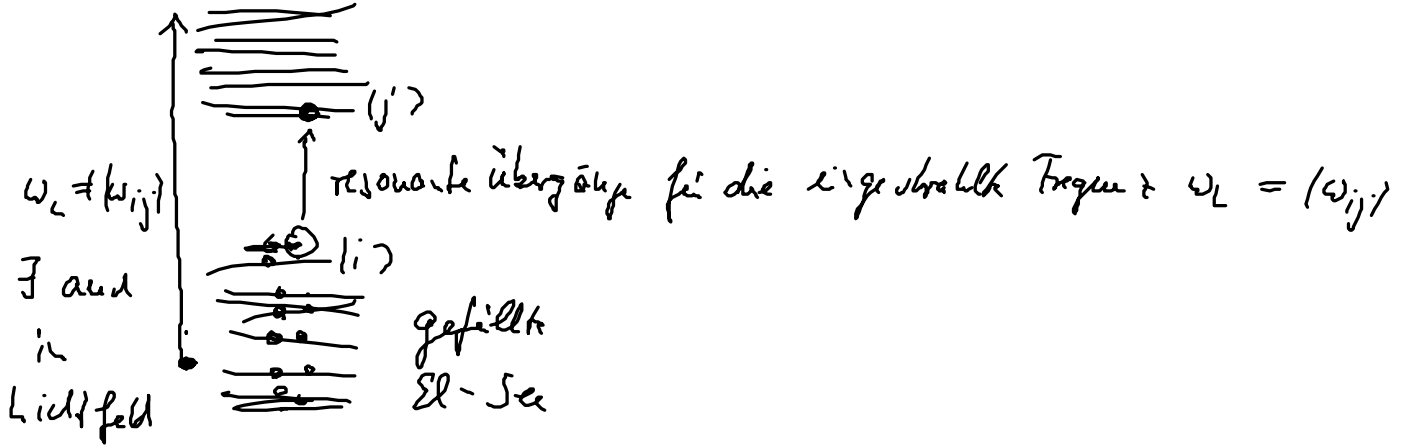 |j⟩
resonante Übergänge für die eingestrahlte Frequenz ω_L = |ω_ij|
ω_L ≠ |ω_ij|
|i⟩
∃ auch
in
Lichtfeld
gefüllte
El-See